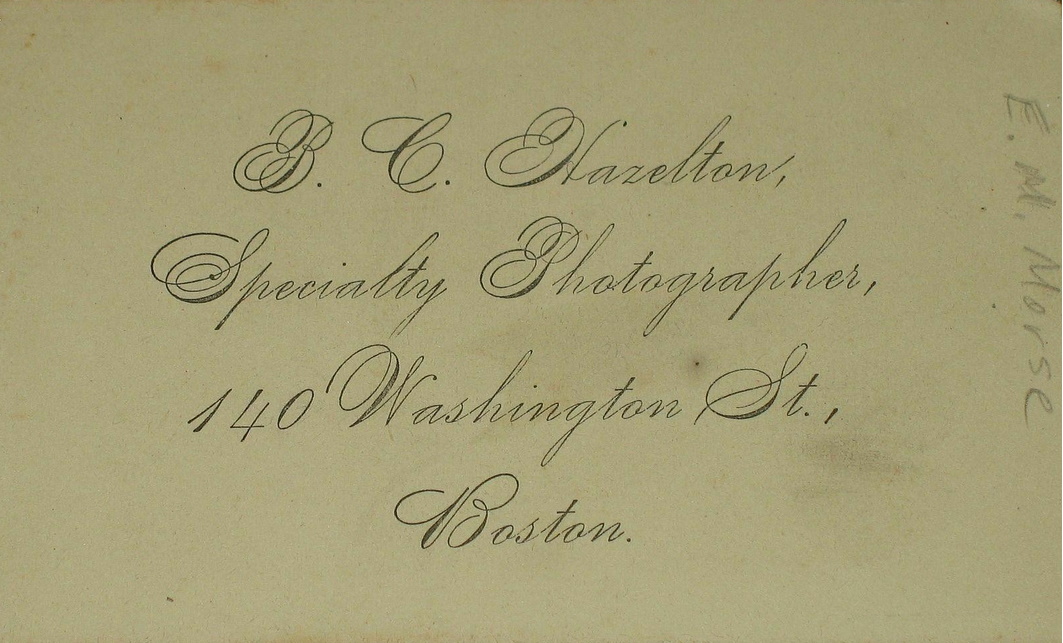 B. C. Hazelton,
Specialty Photographer,
140 Washington St.,
Boston.
E. M. Morse